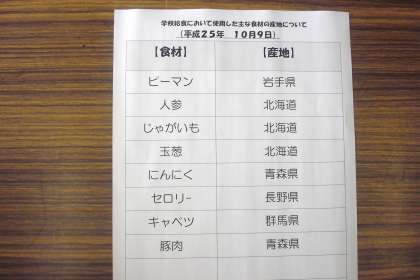 学校給食において使用した主な食材の産地について
（平成25年　10月9日）
【食材】 【産地】
ピーマン 岩手県
人参 北海道
じゃがいも 北海道
玉葱 北海道
にんにく 青森県
セロリー 長野県
キャベツ 群馬県
豚肉 青森県